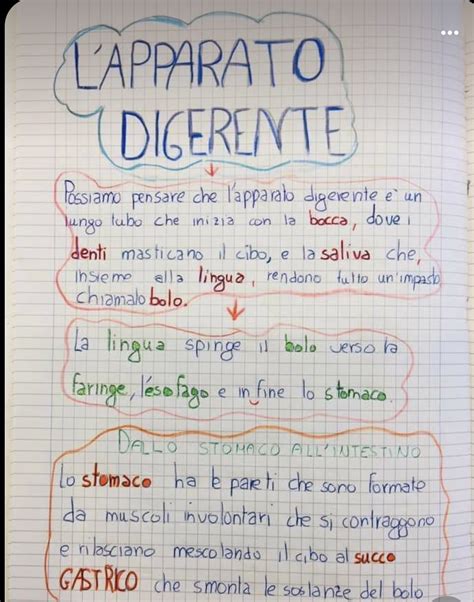 L'APPARATO
DIGERENTE
Possiamo pensare che l'apparato digerente è un
lungo tubo che inizia con la bocca, dove i
denti masticano il cibo, e la saliva che,
insieme alla lingua, rendono tutto un'impasto
chiamato bolo.
La lingua spinge il bolo verso la
faringe, l'esofago e in fine lo stomaco.
DALLO STOMACO ALL'INTESTINO
Lo stomaco ha le pareti che sono formate
da muscoli involontari che si contraggono
e rilasciano mescolando il cibo al succo
GASTRICO che smonta le sostanze del bolo